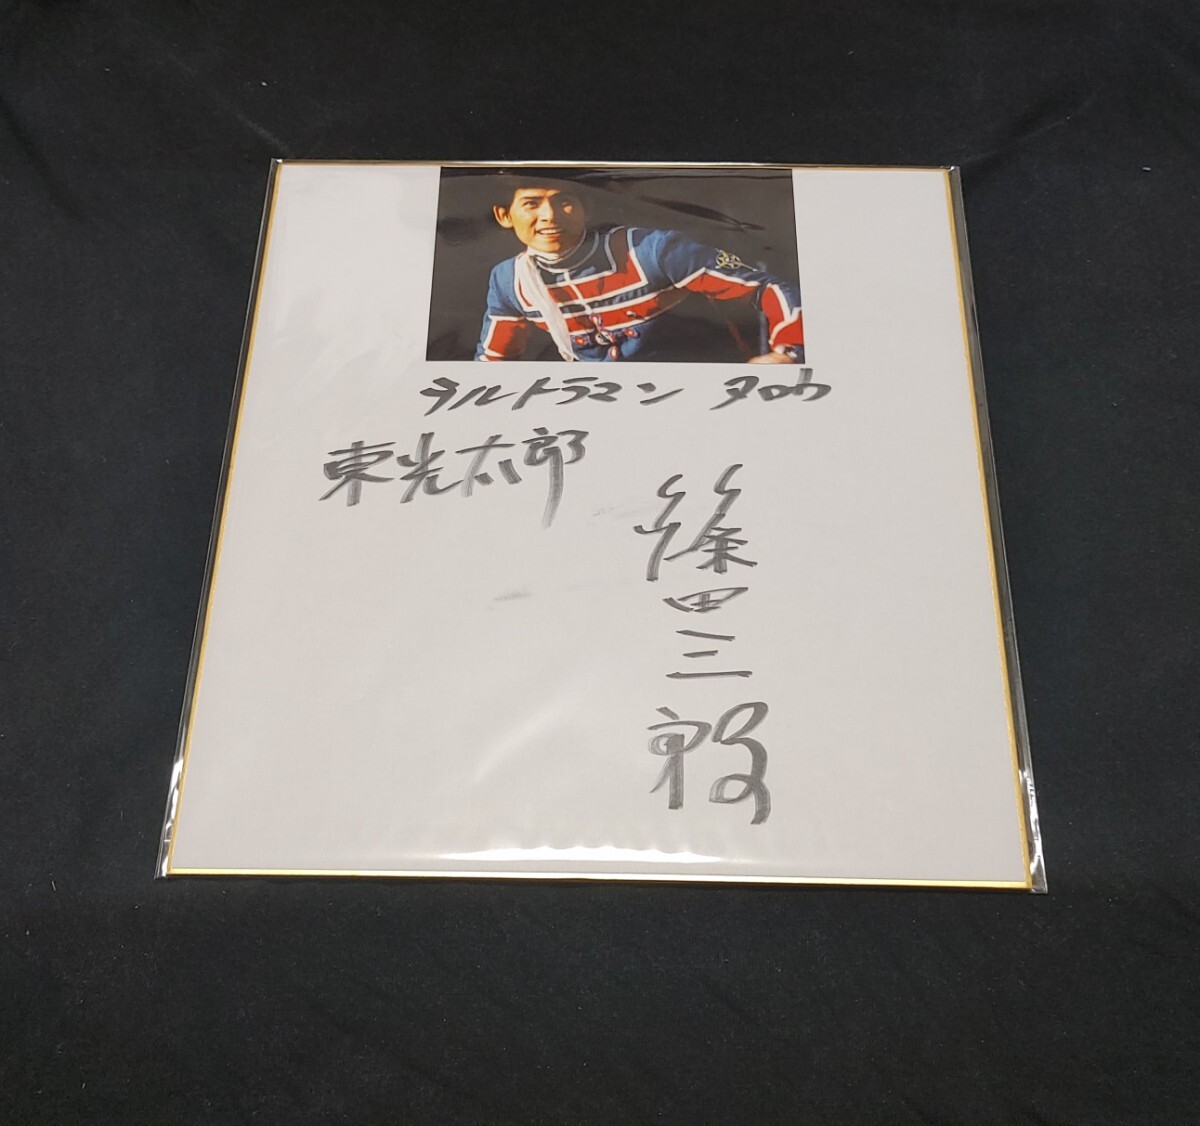 ウルトラマン タロウ
東光太郎
篠田三郎